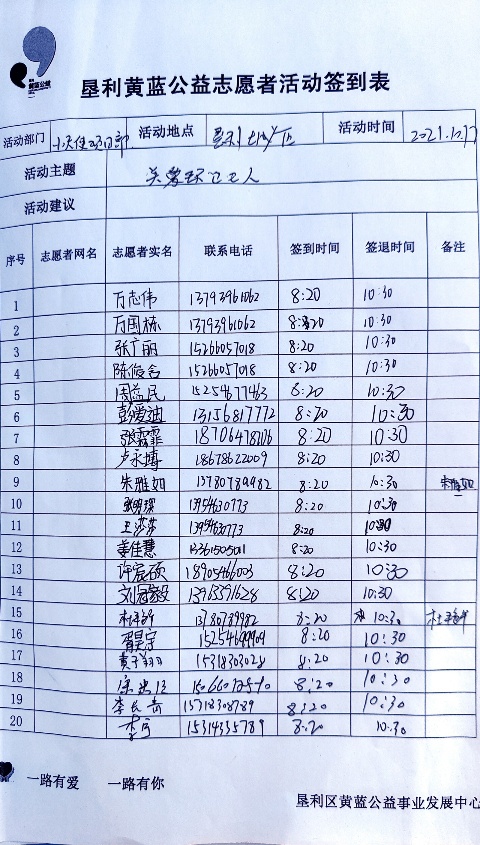 黄蓝公益
垦利黄蓝公益志愿者活动签到表
活动部门 活动地点 垦利 活动时间 2021.10.17
活动主题 关爱环卫工人
活动建议
序号 志愿者网名 志愿者实名 联系电话 签到时间 签退时间 备注
1 万志伟 13793961062 8:20 10:30
2 万国栋 13793961062 8:20 10:30
3 张广丽 15266057018 8:20 10:30
4 陈俊名 15266057018 8:20 10:30
5 周益民 15254677463 8:20 10:30
6 彭爱迪 13156817772 8:20 10:30
7 张霖霏 18706478106 8:20 10:30
8 卢永博 18678622009 8:20 10:30
9 朱雅如 13780789982 8:20 10:30 朱雅如
10 8:20 10:30
11 王莎莎 8:20 10:30
12 姜佳慧 8:20 10:30
13 许宸硕 18905466003 8:20 10:30
14 刘冠毅 13963591628 8:20 10:30
15 13780789982 8:20 10:30
16 胥昊宇 15254699909 8:20 10:30
17 8:20 10:30
18 8:20 10:30
19 李长岳 15718308789 8:20 10:30
20 15314335789 8:20 10:30
一路有爱 一路有你
垦利区黄蓝公益事业发展中心